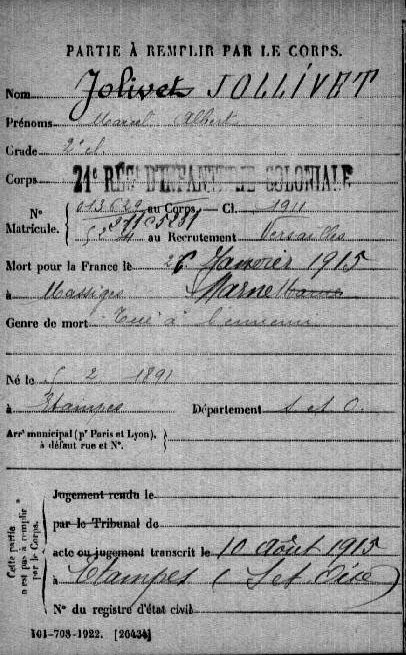 PARTIE À REMPLIR PAR LE CORPS.
Nom Jolivet JOLLIVET
Prénoms Marcel Albert
Grade 2e cl.
Corps 21e RÉGt D'INFANTERIE COLONIALE
N° Matricule. 013629 au Corps. — Cl. 1911
au Recrutement Versailles
Mort pour la France le 26 Janvier 1915
à Massiges Marne Marne
Genre de mort Tué à l'ennemi
Né le 5 2 1891
à Etampes Département S. et O.
Arrt municipal (pr Paris et Lyon),
à défaut rue et N°.
Cette partie n'est pas à remplir par le Corps.
Jugement rendu le
par le Tribunal de
acte ou jugement transcrit le 10 Août 1915
à Etampes (S. et Oise)
N° du registre d'état civil
101-708-1922. [26434]